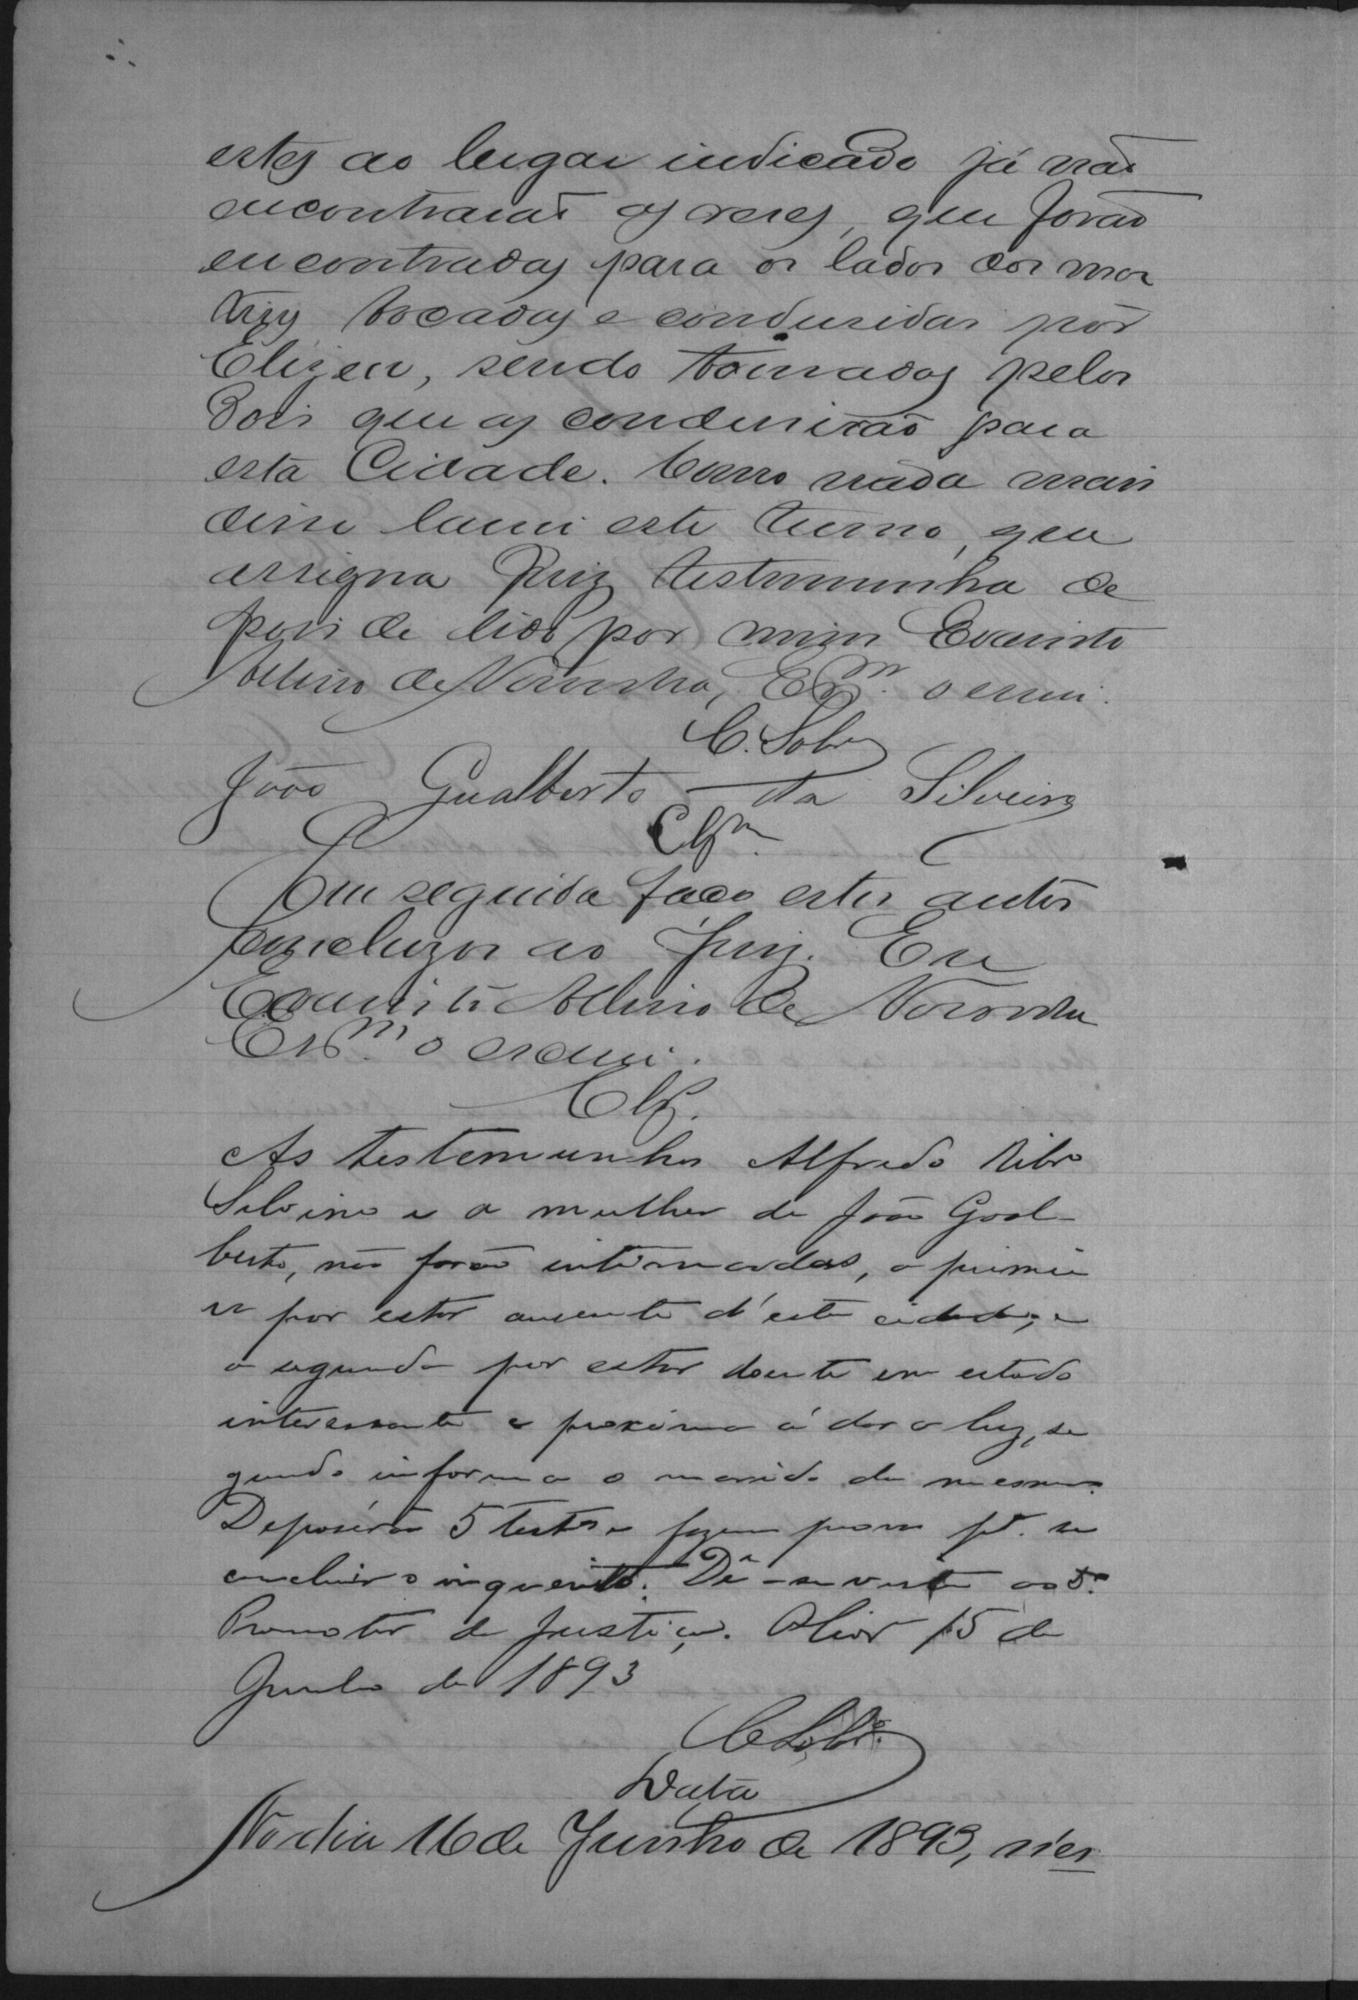 estes ao lugar indicado já não
encontrarão as reses, que forão
encontradas para os lados dos mor
tocadas e condusidas por
Elizeu, sendo tomadas pelos
dois que as condusirão para
esta Cidade. Como nada mais
disse lavrei este termo, que
assigna Juiz testemunha de
pois de lido por mim Evaristo
de Noronha, Esm. o escrevi.
C. Sobr
João Gualberto da Silveira
Clsm.
Em seguida faço estes autos
Concluzos ao Juiz. Eu
Evaristo de Noronha
Esm. o escrevi.
Cls.
As testemunhas Alfredo Ribro
Silvino e a mulher de João Gual-
berto, não forão intimadas, a primei
ra por estar ausente d'esta cidade, e
a segunda por estar doente em estado
interessante e proxima á dar a luz, se
gundo informa o marido da mesma.
Depozerão 5 testas e fazem prova pa. se
concluir o inquerito. Dê-se vista ao Dr.
Promotor de Justiça. 15 de
Junho de 1893
C Sobro.
Data
No dia 16 de Junho de 1893, n'es